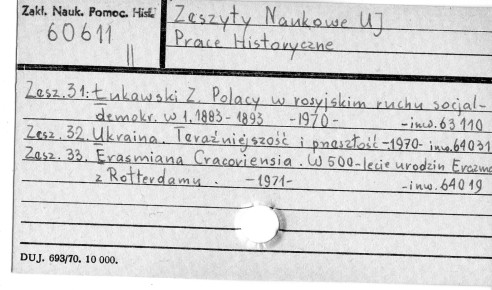 Zakł. Nauk. Pomoc. Hist.
60611
II
Zeszyty Naukowe UJ
Prace Historyczne
Zesz. 31: Łukawski Z. Polacy w rosyjskim ruchu socjal-
demokr. w l. 1883-1893 -1970- -inw. 63110
Zesz. 32. Ukraina. Teraźniejszość i przeszłość -1970- inw. 64031
Zesz. 33. Erasmiana Cracoviensia. W 500-lecie urodzin Erazma
z Rotterdamu. -1971- -inw. 64019
DUJ. 693/70. 10 000.